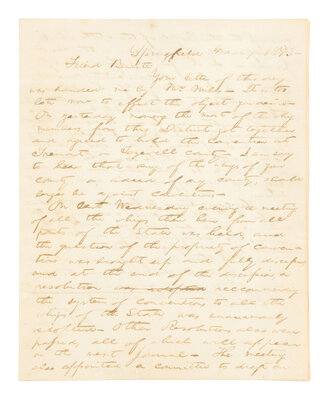 Springfield
Friend Bennett
Your letter of this day
was handed me by Mr. Miles — It is too
late now to effect the object you
On yesterday morning the most of the whig
members from this District got together
and agreed to hold the convention at
Tremont Tazewell County — I am sorry
to hear that any of the whigs of your
county or indeed of any county should
be against conventions —
On last Wednesday evening a meeting
of all the whigs then here from all
parts of the State was held, and
the question of the propriety of conven-
tions was brought up and fully discussed
and at the end of the discussion a
resolution was adopted recommending
the system of conventions to all the
whigs of the State was unanimously
adopted — Other Resolutions also were
passed, all of which will appear
in the next Journal — The meeting
also appointed a committee to draft an